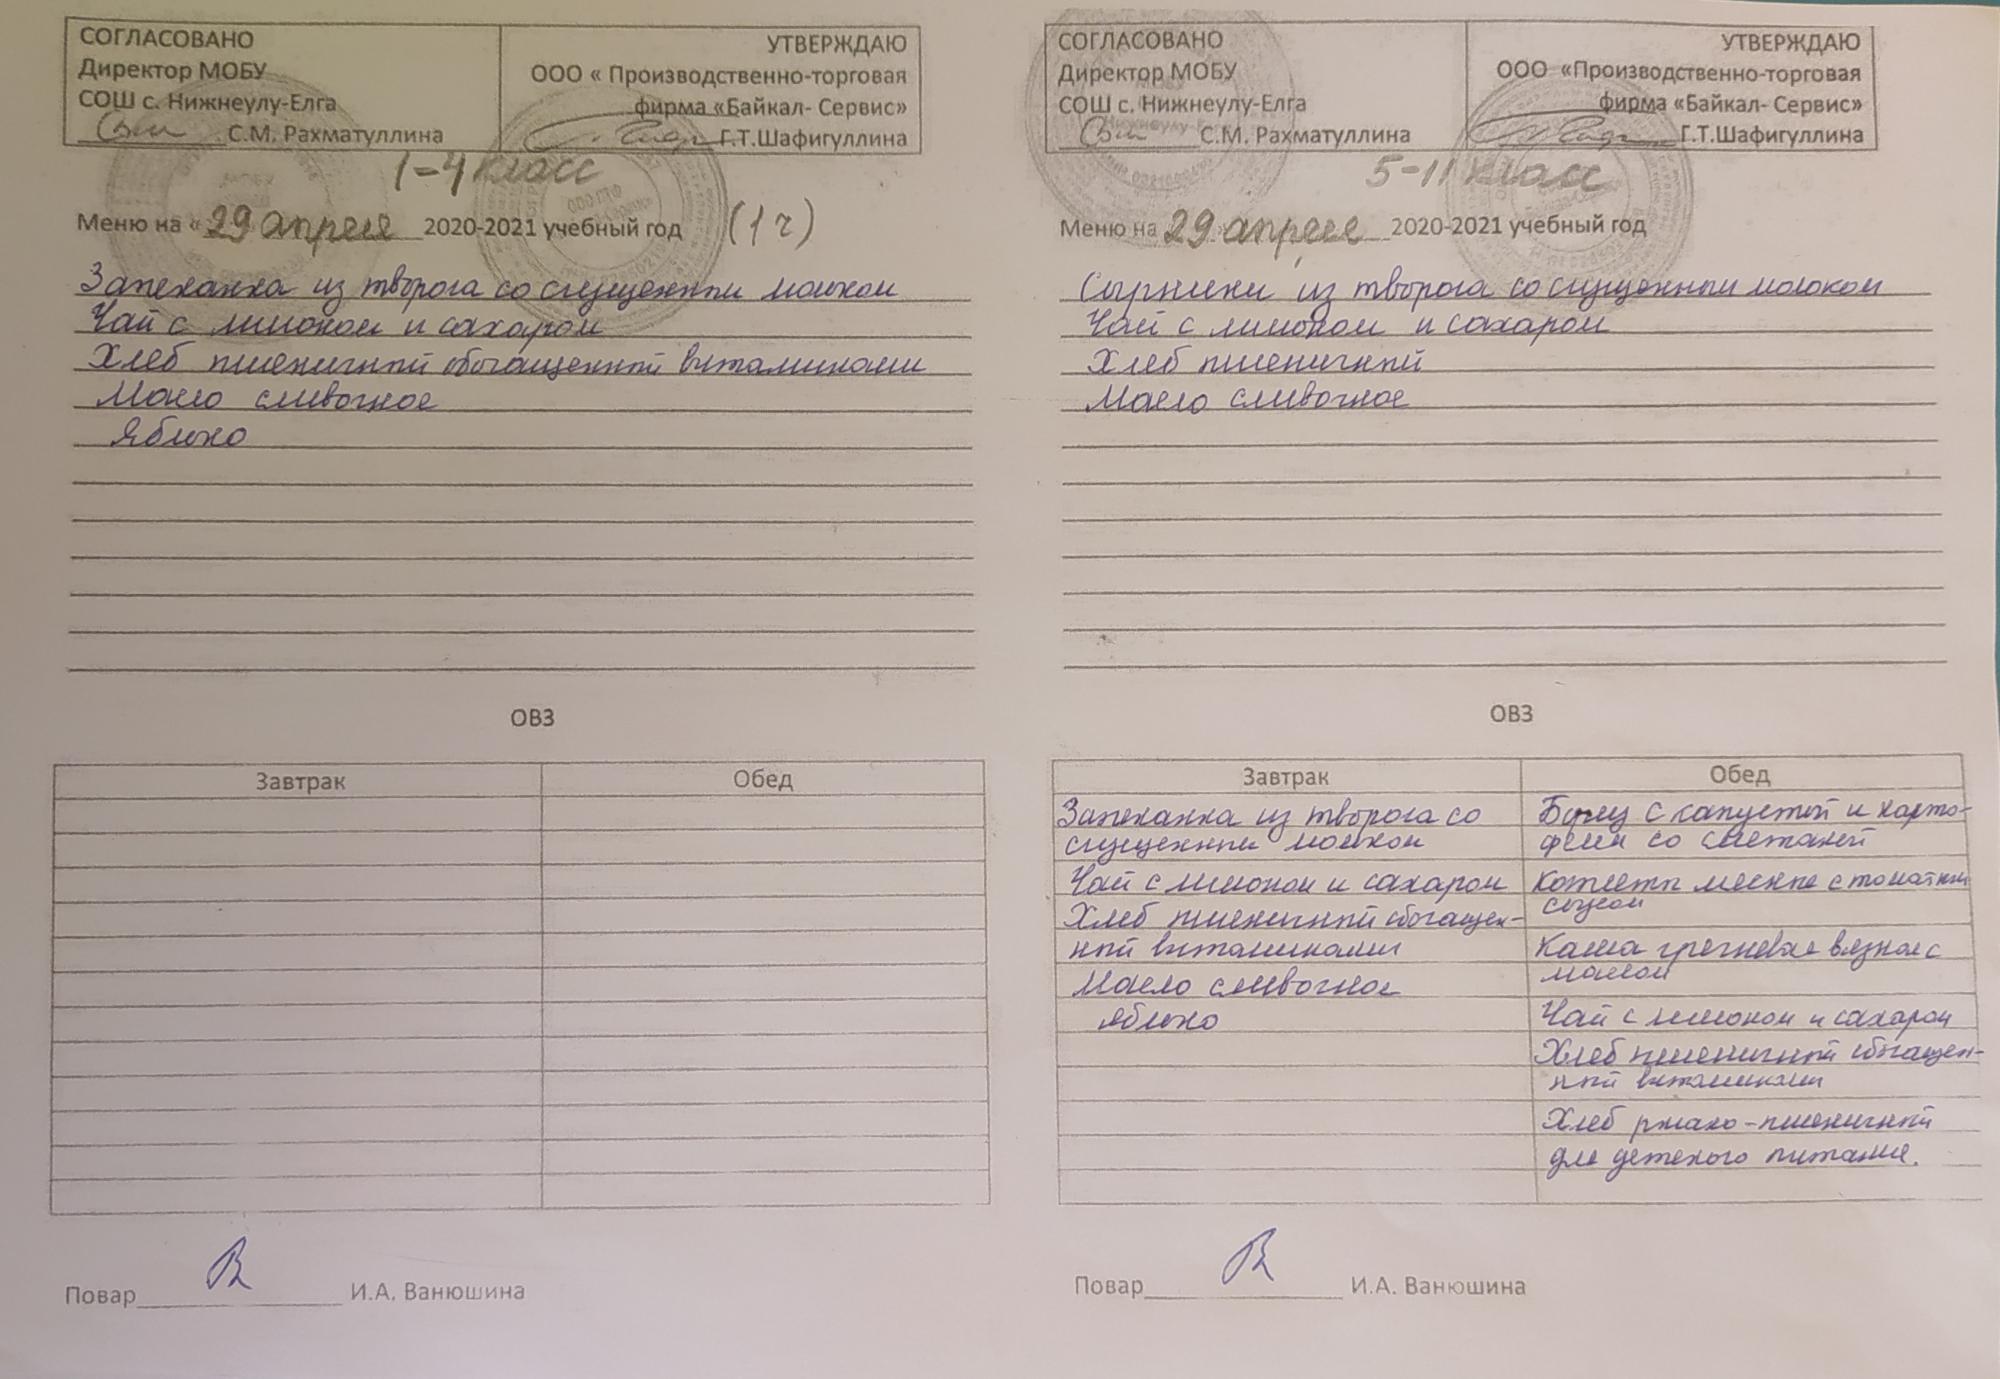 СОГЛАСОВАНО
Директор МОБУ
СОШ с. Нижнеулу-Елга
С.М. Рахматуллина
УТВЕРЖДАЮ
ООО « Производственно-торговая
фирма «Байкал- Сервис»
Г.Т.Шафигуллина
1-4 класс
Меню на « 29 апреля 2020-2021 учебный год (1 г)
Запеканка из творога со сгущенным молоком
Чай с лимоном и сахаром
Хлеб пшеничный обогащенный витаминами
Масло сливочное
Яблоко
ОВЗ
Завтрак Обед
Повар И.А. Ванюшина
СОГЛАСОВАНО
Директор МОБУ
СОШ с. Нижнеулу-Елга
С.М. Рахматуллина
УТВЕРЖДАЮ
ООО «Производственно-торговая
фирма «Байкал- Сервис»
Г.Т.Шафигуллина
5-11 класс
Меню на 29 апреля 2020-2021 учебный год
Сырники из творога со сгущенным молоком
Чай с лимоном и сахаром
Хлеб пшеничный
Масло сливочное
ОВЗ
Завтрак
Запеканка из творога со
сгущенным молоком
Чай с лимоном и сахаром
Хлеб пшеничный обогащен-
ный витаминами
Масло сливочное
Яблоко
Обед
Борщ с капустой и карто-
фелем со сметаной
Котлеты мясные с томатным
соусом
Каша гречневая вязкая с
маслом
Чай с лимоном и сахаром
Хлеб пшеничный обогащен-
ный витаминами
Хлеб ржано-пшеничный
для детского питания.
Повар И.А. Ванюшина